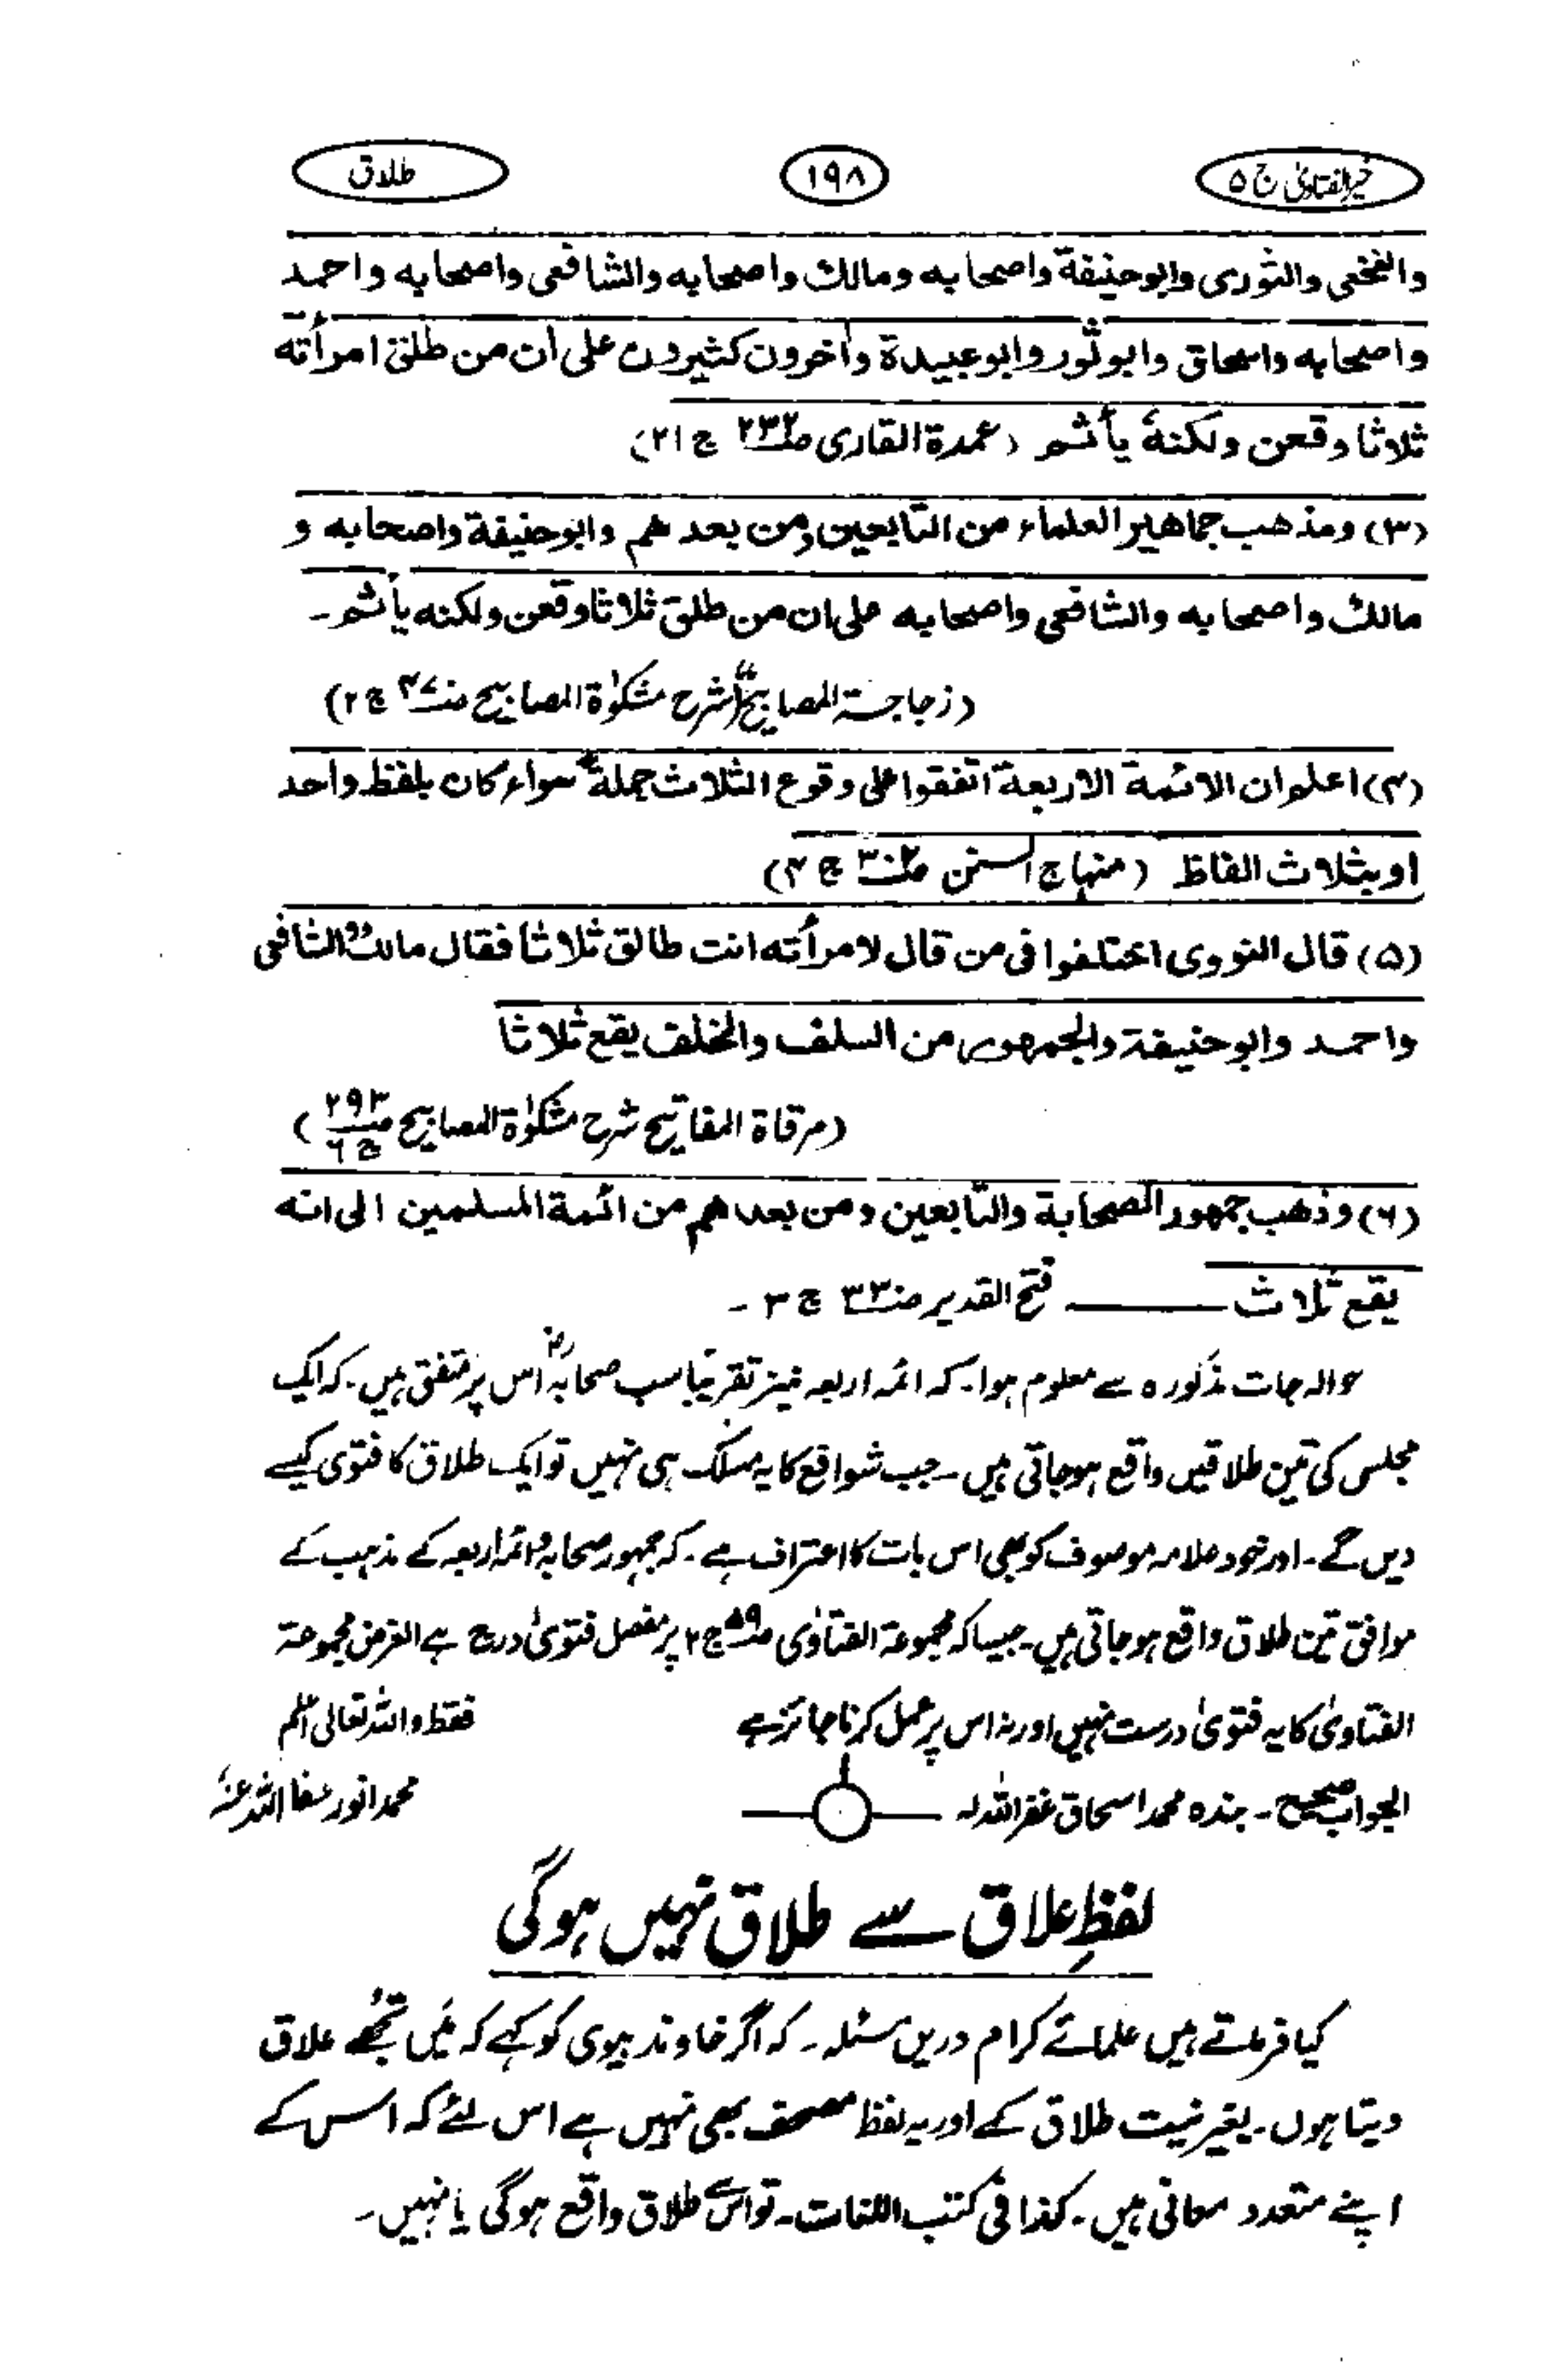 خیر الفتاویٰ ج ۵
۱۹۸
طلاق
والنخعی والثوری وابوحنیفة واصحابه ومالك واصحابه والشافعی واصحابه واحمد
واصحابه واسحاق وابوثور وابوعبیدة واٰخرون کثیرون علی ان من طلق امرأته
ثلاثا وقعن ولکنهٗ یأثم (عمدة القاری ص۲۳۲ ج۲۱)
(۳) ومذهب جماهیر العلماء من التابعین ومن بعدهم وابوحنیفة واصحابه و
مالك واصحابه والشافعی واصحابه علی ان من طلق ثلاثا وقعن ولکنه یأثم۔
(زجاجۃ المصابیح شرح مشکوٰۃ المصابیح ص۴۷ ج۲)
(۴) اعلم ان الائمة الاربعة اتفقوا علی وقوع الثلاث جملة سواء کان بلفظ واحد
او بثلاث الفاظ (منہاج السنن ص۳۰۲ ج۴)
(۵) قال النووی اختلفوا فی من قال لامرأته انت طالق ثلاثا فقال مالك والشافعی
واحمد وابوحنیفة والجمهور من السلف والخلف یقع ثلاثا
(مرقاة المفاتیح شرح مشکوٰة المصابیح ص۲۹۳ ج۶)
(۶) وذهب جمهور الصحابة والتابعین ومن بعدهم من ائمة المسلمین الی انه
یقع ثلاث ـــــــ فتح القدیر ص۳۳۰ ج ۳۔
حوالہ جات مذکورہ سے معلوم ہوا۔ کہ ائمہ اربعہ نیز تقریباً سب صحابہؓ اس پر متفق ہیں۔ کہ ایک
مجلس کی تین طلاقیں واقع ہوجاتی ہیں۔ جب شوافع کا یہ مسلک ہی نہیں تو ایک طلاق کا فتویٰ کیسے
دیں گے۔ اور خود علامہ موصوف کو بھی اس بات کا اعتراف ہے۔ کہ جمہور صحابہ وائمہ اربعہ کے مذہب کے
موافق تین طلاق واقع ہوجاتی ہیں۔ جیسا کہ مجموعۃ الفتاوٰی ص۵۹ ج۲ پر مفصل فتویٰ درج ہے الغرض مجموعۃ
الفتاویٰ کا یہ فتویٰ درست نہیں اور نہ اس پر عمل کرنا جائز ہے فقط واللہ تعالیٰ اعلم
الجواب صحیح۔ بندہ محمد اسحاق غفر اللہ لہ محمد انور عفا اللہ عنہٗ
لفظِ علاق سے طلاق نہیں ہوگی
کیا فرماتے ہیں علمائے کرام دریں مسئلہ۔ کہ اگر خاوند بیوی کو کہے کہ مَیں تجھُے علاق
دیتا ہوں۔ بغیر نیت طلاق کے اور یہ لفظ مصحف بھی نہیں ہے اس لئے کہ اس کے
اپنے متعدد معانی ہیں۔ کذا فی کتب اللغات۔ تو اس سے طلاق واقع ہوگی یا نہیں۔